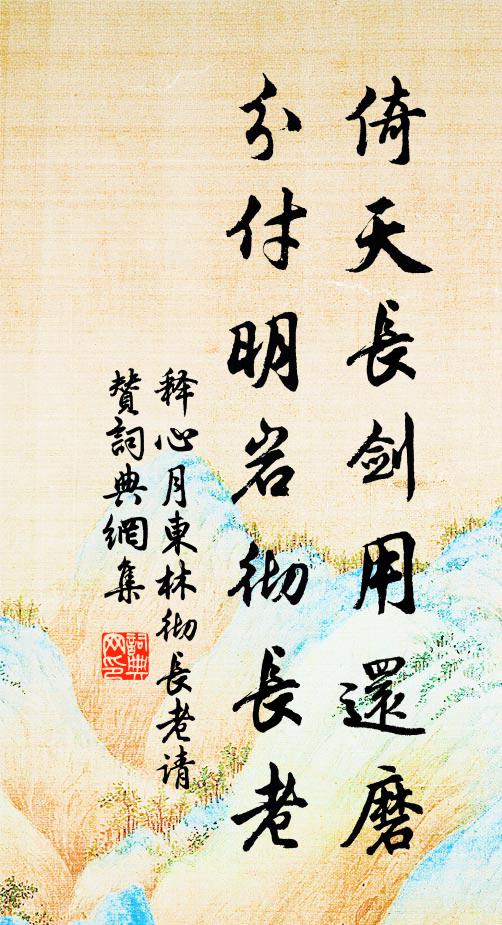 倚天長剑用還磨
分付明岩彻長老
释心月東林彻長老请
赞詞典網集
詞典
网印